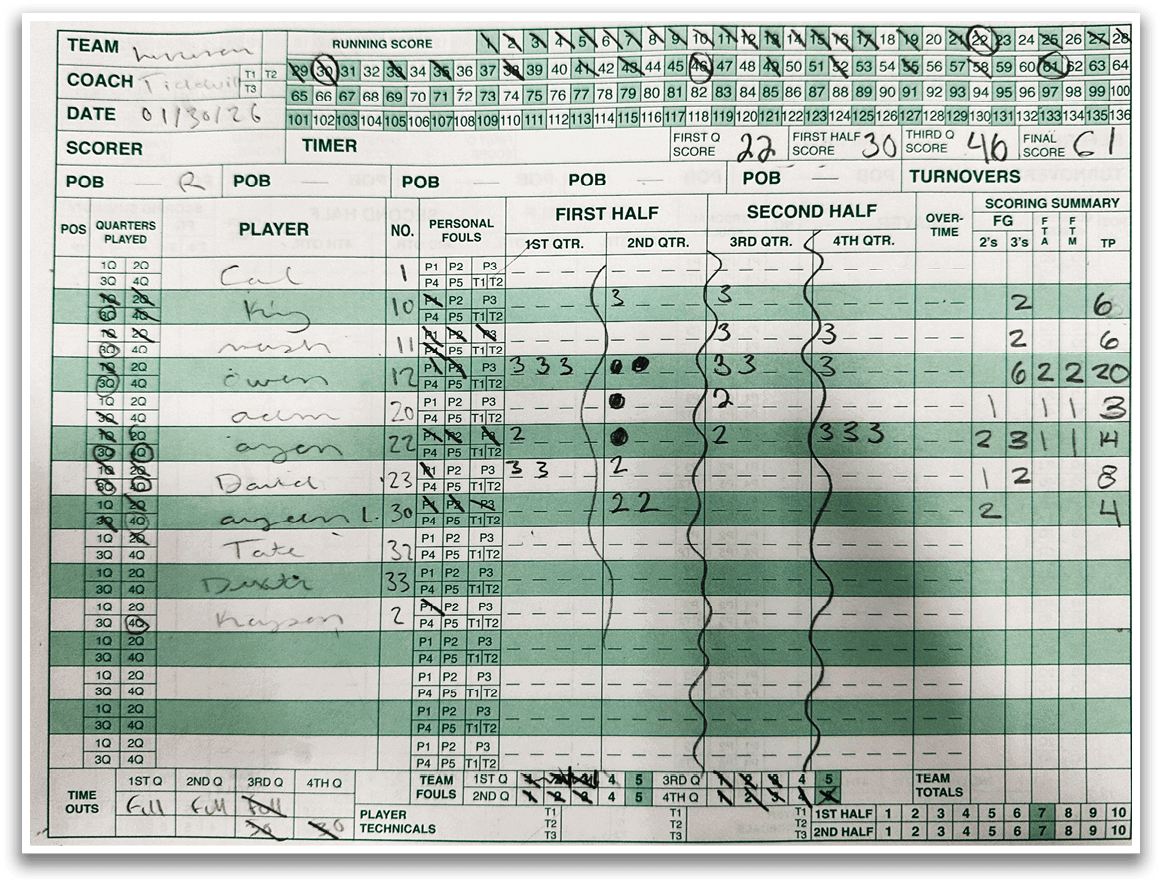 TEAM RUNNING SCORE 1 2 3 4 5 6 7 8 9 10 11 12 13 14 15 16 17 18 19 20 21 22 23 24 25 26 27 28
COACH T1 T2 T3 29 30 31 32 33 34 35 36 37 38 39 40 41 42 43 44 45 46 47 48 49 50 51 52 53 54 55 56 57 58 59 60 61 62 63 64
65 66 67 68 69 70 71 72 73 74 75 76 77 78 79 80 81 82 83 84 85 86 87 88 89 90 91 92 93 94 95 96 97 98 99 100
DATE 01/30/26 101 102 103 104 105 106 107 108 109 110 111 112 113 114 115 116 117 118 119 120 121 122 123 124 125 126 127 128 129 130 131 132 133 134 135 136
SCORER TIMER FIRST Q SCORE 22 FIRST HALF SCORE 30 THIRD Q SCORE 46 FINAL SCORE 61
POB R POB POB POB POB TURNOVERS
POS QUARTERS PLAYED PLAYER NO. PERSONAL FOULS FIRST HALF SECOND HALF OVER-TIME SCORING SUMMARY
1ST QTR. 2ND QTR. 3RD QTR. 4TH QTR. FG 2's 3's FTA FTM TP
1Q 2Q Cal 1 P1 P2 P3
3Q 4Q P4 P5 T1 T2
1Q 2Q King 10 P1 P2 P3 3 3 2 6
3Q 4Q P4 P5 T1 T2
1Q 2Q nash 11 P1 P2 P3 3 3 2 6
3Q 4Q P4 P5 T1 T2
1Q 2Q owen 12 P1 P2 P3 3 3 3 3 3 3 6 2 2 20
3Q 4Q P4 P5 T1 T2
1Q 2Q 20 P1 P2 P3 2 1 1 1 3
3Q 4Q P4 P5 T1 T2
1Q 2Q 22 P1 P2 P3 2 2 3 3 3 2 3 1 1 14
3Q 4Q P4 P5 T1 T2
1Q 2Q David 23 P1 P2 P3 3 3 2 1 2 8
3Q 4Q P4 P5 T1 T2
1Q 2Q L. 30 P1 P2 P3 2 2 2 4
3Q 4Q P4 P5 T1 T2
1Q 2Q Tate 32 P1 P2 P3
3Q 4Q P4 P5 T1 T2
1Q 2Q 33 P1 P2 P3
3Q 4Q P4 P5 T1 T2
1Q 2Q 2 P1 P2 P3
3Q 4Q P4 P5 T1 T2
1Q 2Q P1 P2 P3
3Q 4Q P4 P5 T1 T2
1Q 2Q P1 P2 P3
3Q 4Q P4 P5 T1 T2
1Q 2Q P1 P2 P3
3Q 4Q P4 P5 T1 T2
1Q 2Q P1 P2 P3
3Q 4Q P4 P5 T1 T2
TIME OUTS 1ST Q 2ND Q 3RD Q 4TH Q TEAM FOULS 1ST Q 1 2 3 4 5 3RD Q 1 2 3 4 5 TEAM TOTALS
Full Full Full 2ND Q 1 2 3 4 5 4TH Q 1 2 3 4 5
30 30 PLAYER TECHNICALS T1 T2 T3 T1 T2 T3 T1 T2 T3 1ST HALF 1 2 3 4 5 6 7 8 9 10
2ND HALF 1 2 3 4 5 6 7 8 9 10